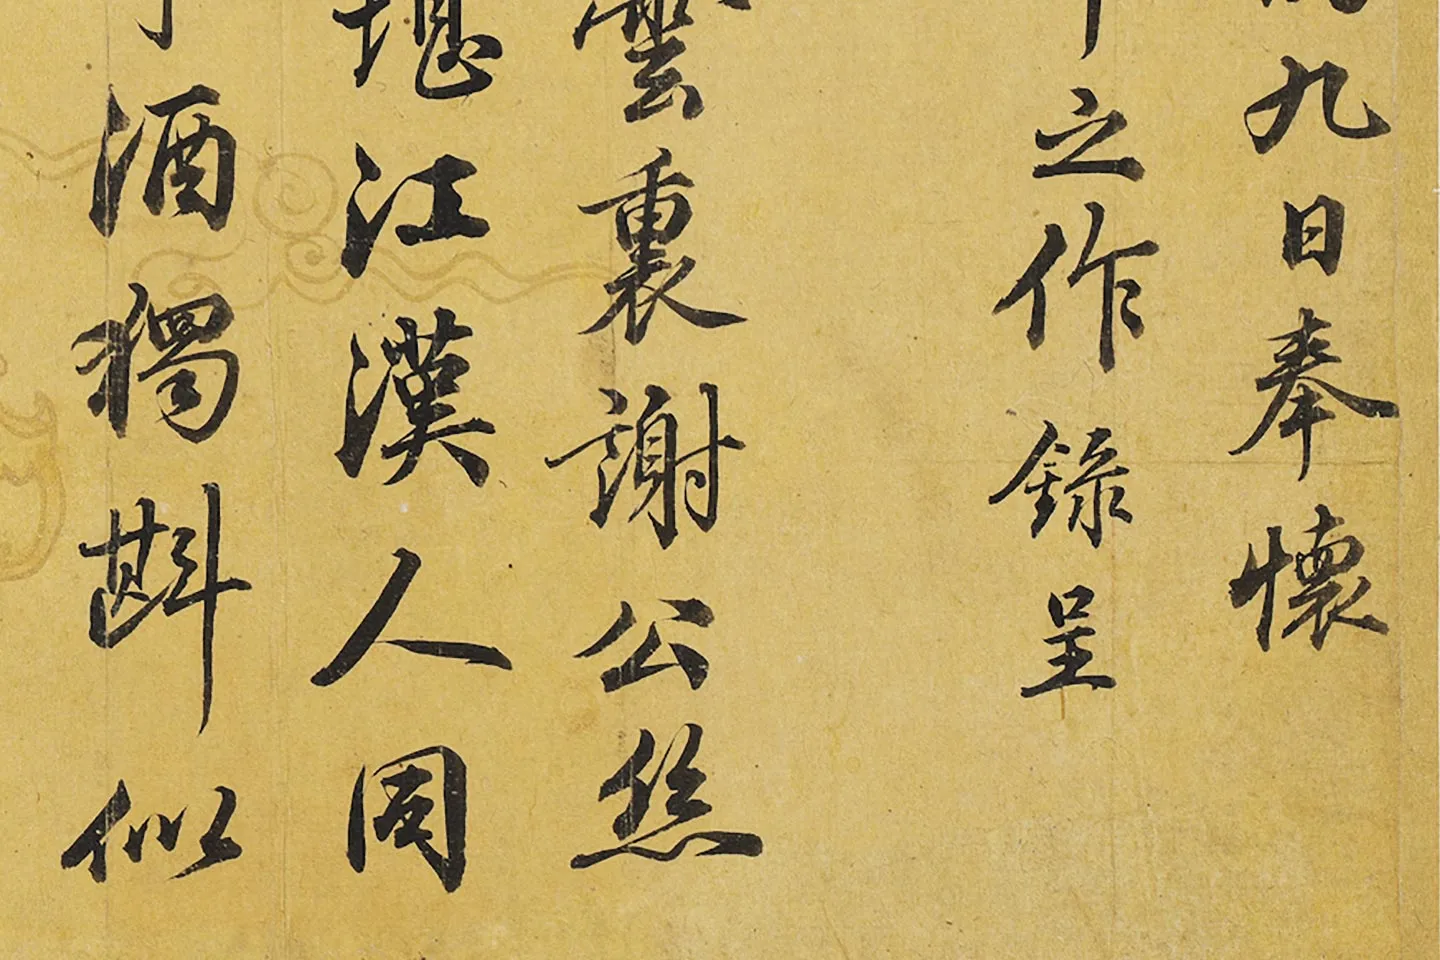 九日奉懷
之作錄呈
雲裏謝公
江漢人
酒獨斟似